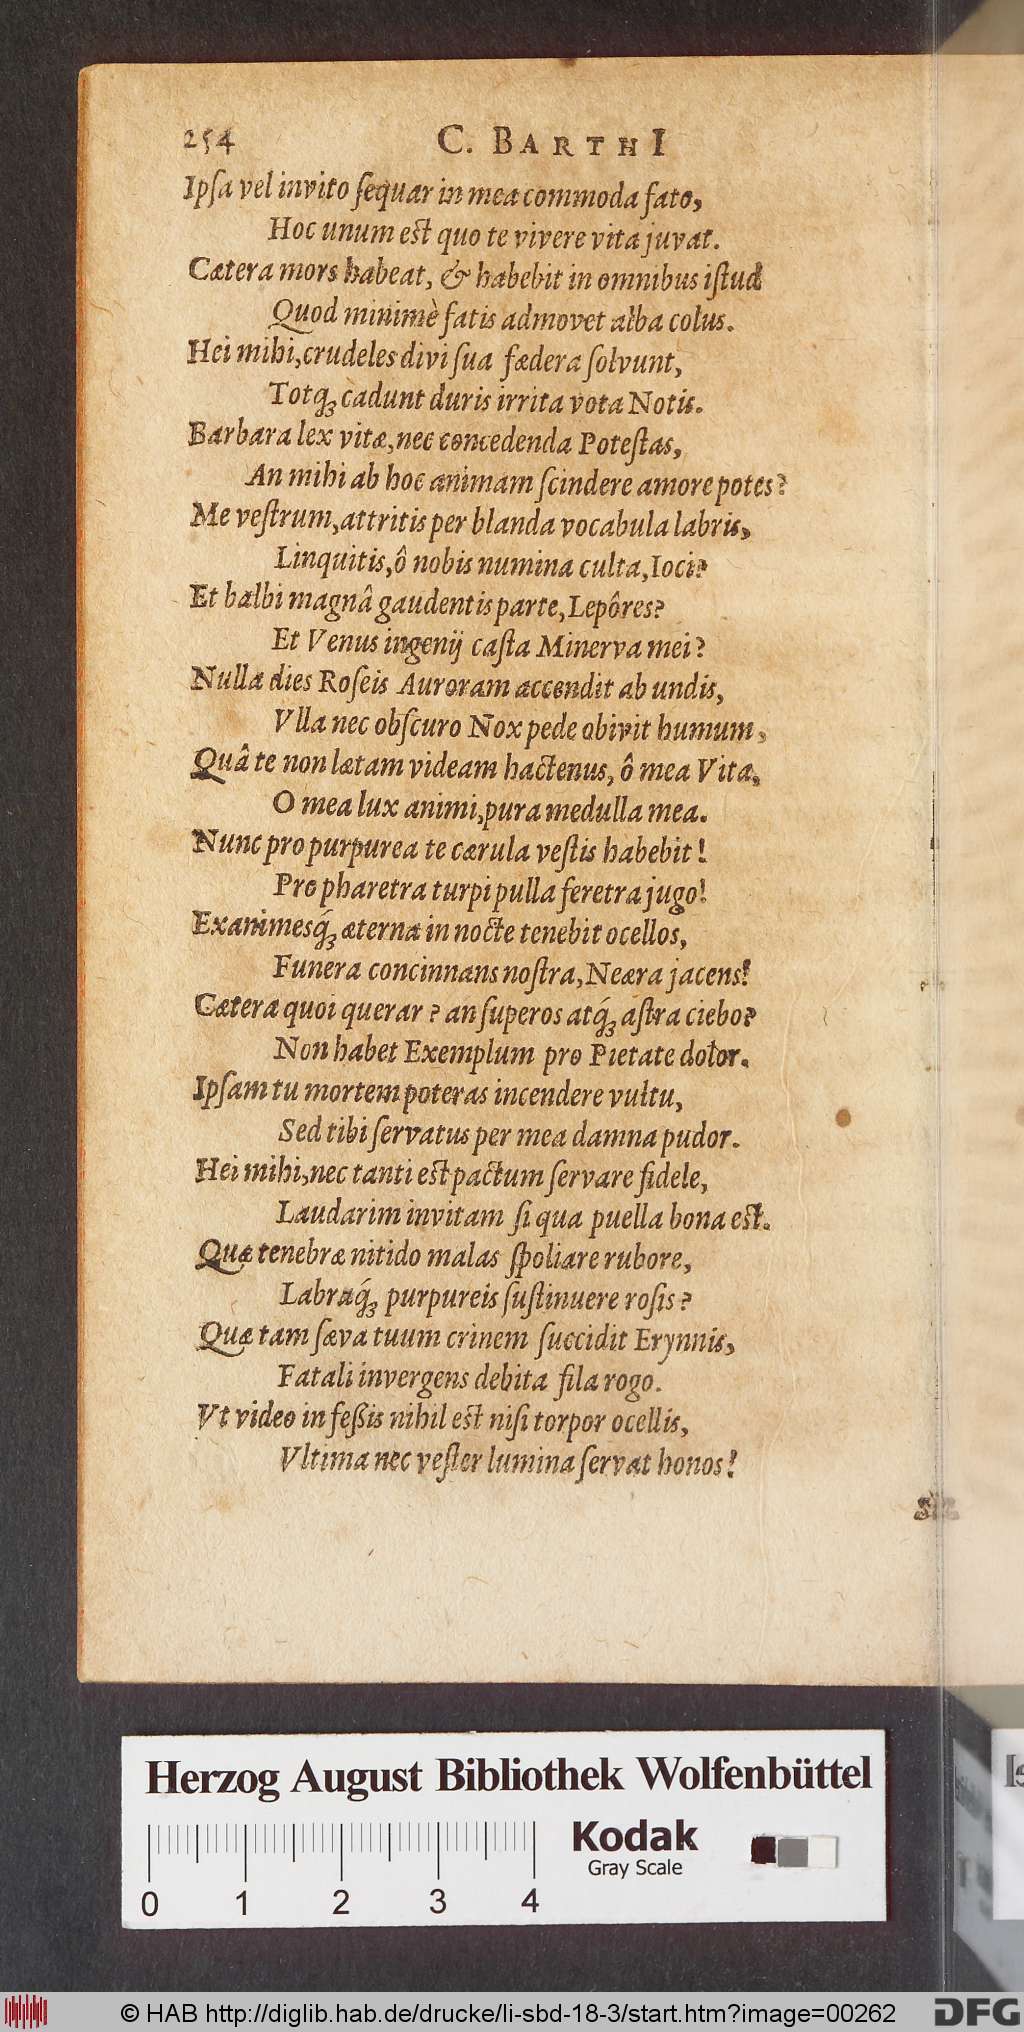 254 C. BARTHI
Ipſa vel invito ſequar in mea commoda fato,
Hoc unum eſt quo te vivere vita juvat.
Cætera mors habeat, & habebit in omnibus iſtud
Quod minimè fatis admovet alba colus.
Hei mihi, crudeles divi ſua fædera ſolvunt,
Totq́ꝫ cadunt duris irrita vota Notis.
Barbara lex vitæ, nec concedenda Poteſtas,
An mihi ab hoc animam ſcindere amore potes?
Me veſtrum, attritis per blanda vocabula labris,
Linquitis, ô nobis numina culta, Ioci?
Et balbi magnâ gaudentis parte, Lepôres?
Et Venus ingenij caſta Minerva mei?
Nulla dies Roſeis Auroram accendit ab undis,
Vlla nec obſcuro Nox pede obivit humum,
Quâ te non lætam videam hactenus, ô mea Vita,
O mea lux animi, pura medulla mea.
Nunc pro purpurea te cærula veſtis habebit!
Pro pharetra turpi pulla feretra jugo!
Exanimesq́ꝫ æterna in nocte tenebit ocellos,
Funera concinnans noſtra, Neæra jacens!
Cætera quoi querar? an ſuperos atq́ꝫ aſtra ciebo?
Non habet Exemplum pro Pietate dolor.
Ipſam tu mortem poteras incendere vultu,
Sed tibi ſervatus per mea damna pudor.
Hei mihi, nec tanti eſt pactum ſervare fidele,
Laudarim invitam ſi qua puella bona eſt.
Quæ tenebræ nitido malas ſpoliare rubore,
Labraq́ꝫ purpureis ſuſtinuere roſis?
Quæ tam ſæva tuum crinem ſuccidit Erynnis,
Fatali invergens debita fila rogo.
Vt video in feßis nihil eſt niſi torpor ocellis,
Vltima nec veſter lumina ſervat honos!
Herzog August Bibliothek Wolfenbüttel
Kodak
Gray Scale
0 1 2 3 4
© HAB http://diglib.hab.de/drucke/li-sbd-18-3/start.htm?image=00262
DFG